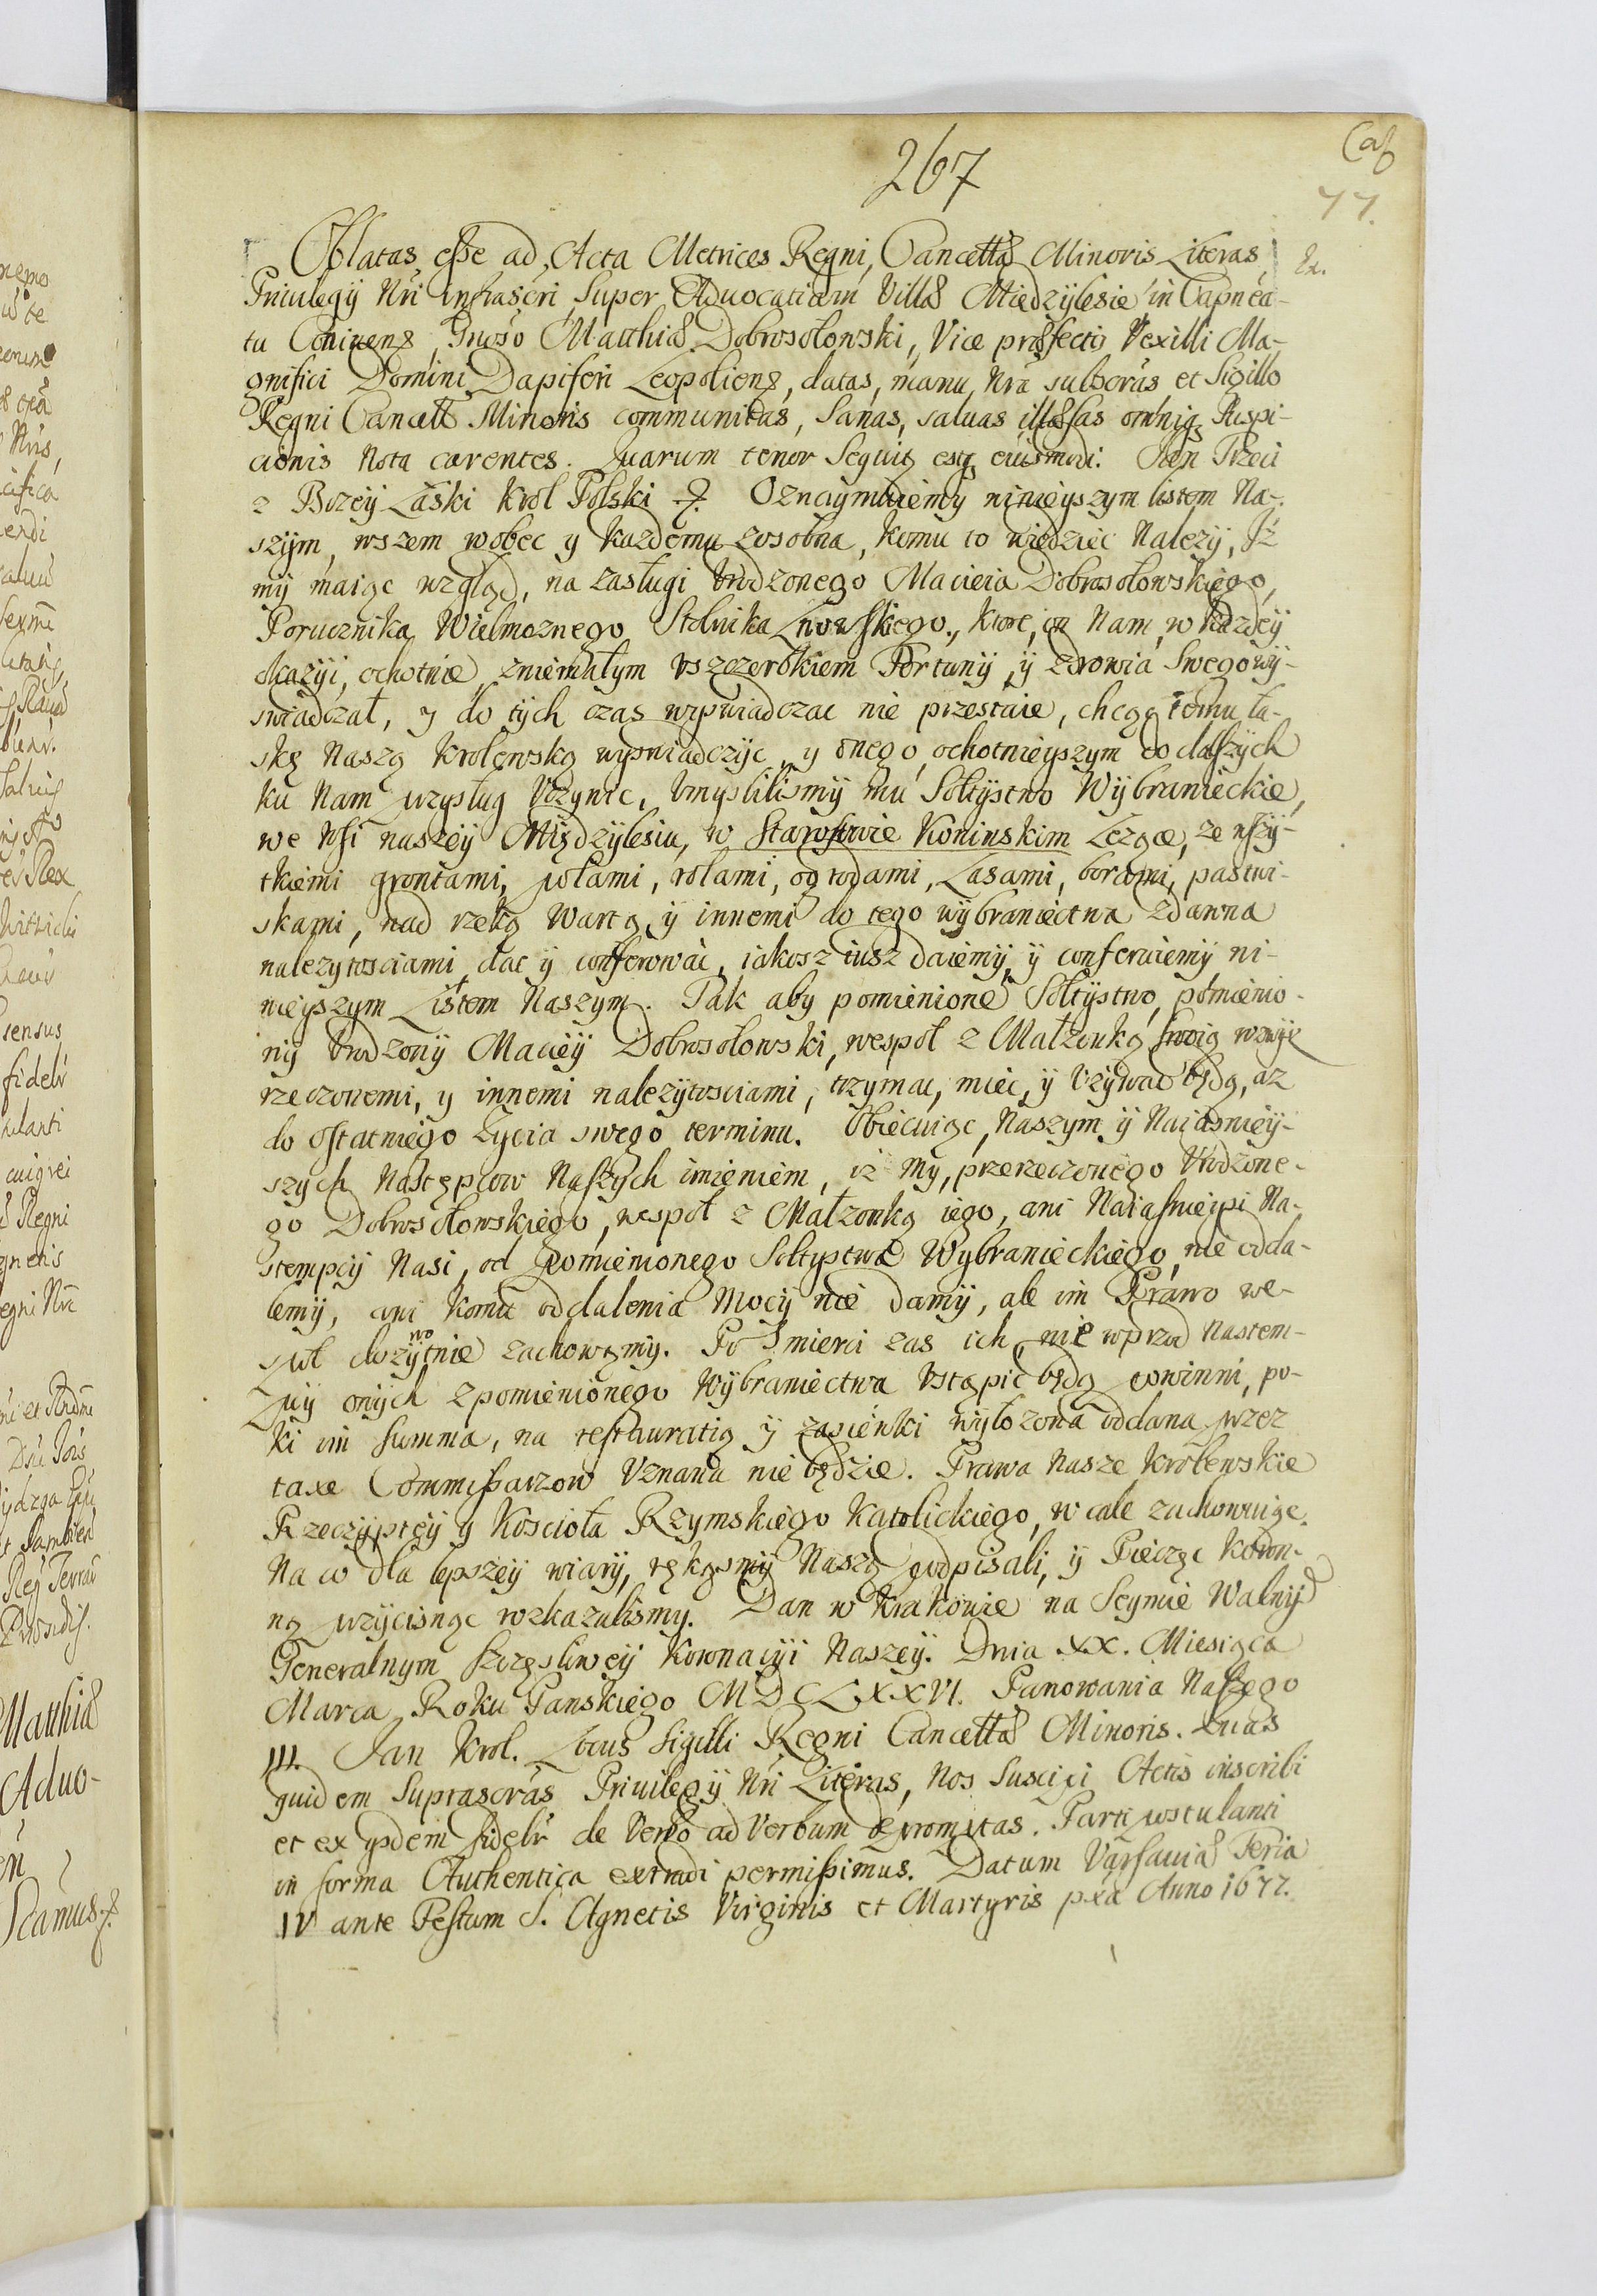 267
77.
Oblatas esse ad Acta Metrices Regni, Cancellae Minoris Literas
Priuilegÿ Nri infrascri, Super Aduocatiam Villae Miedzÿlesie in Capnea-
tu Coninens, Gnoso Matthiae Dobrosołowski, Vice praefecto Vexilli Ma-
gnifici Domini Dapiferi Leopoliens, datas, manu Nra subscras et Sigillo
Regni Cancell Minoris communitas, Sanas, saluas illaesas omniq Suspi-
cionis Nota carentes. Quarum tenor Sequitz estq eiusmodi. Jan Trzeci
z Bozeÿ Łaski Krol Polski. Oznaymuiemy ninieyszym listem Na-
szÿm, wszem wobec y kazdemu zosobna, komu to wiedziec Nalezÿ, Jż
mÿ maiąc wzgląd, na zasługi Vrodzonego Macieia Dobrosołowskiego,
Porucznika Wielmoznego Stolnika Lwowskiego, ktore, on Nam, w kazdeÿ
okazÿi, ochotnie zniemałym Vszczerbkiem Fortunÿ, ÿ zdrowia Swego wÿ-
swiadczał, y do tÿch czas wyswiadczac nie przestaie, chcąc temu ła-
skę Naszą Krolewską wyswiadczÿc, y onego ochotnieyszym do dalszÿch
ku Nam przysług Vczynic, Vmyslilismÿ mu Sołtÿstwo Wÿbranieckie,
we Wsi naszeÿ Międzÿlesiu, w Starostwie Koninskim Lezące, ze wszÿ-
tkiemi grontami, polami, rolami, ogrodami, Lasami, borami, pastwi-
skami, nad rzeką Wartą, ÿ innemi do tego wÿbraniectwa zdawna
nalezytosciami dac ÿ conferowac, iakosz iusz daiemÿ, ÿ conferuiemÿ ni-
nieyszym Listem Naszym. Tak aby pomienione Sołtÿstwo, pomienio-
nÿ Vrodzonÿ Macieÿ Dobrosołowski, wespoł z Małzonką swoią wzwÿż
rzeczonemi, y innemi nalezÿtosciami, trzymac, miec, ÿ Vzÿwac będą, az
do ostatniego Zycia swego terminu. Obiecuiąc, Naszym ÿ Naiasnieÿ-
szÿch Następcow Naszÿch imieniem, iz mÿ, przerzeczonego Vrodzone-
go Dobrosołowskiego, wespoł z Małzonką iego, ani Naiasnieÿsi Na-
stempcÿ Nasi, od pomienionego Sołtystwa Wybranieckiego, nie odda-
lemÿ, ani komu oddalenia Mocÿ nie damÿ, ale im Prawo we-
społ dozÿwotnie zachowamÿ. Po Smierci zas ich, nie wprzod Nastem-
pcÿ onÿch z pomienionego Wÿbraniectwa Vstąpic będą powinni, po-
ki im Summa, na restauratią ÿ zasiewki wÿłozona oddana przez
taxe Commissarzow Vznana nie będzie. Prawa Nasze Krolewskie
Rzeczÿptey y Koscioła Rzymskiego Katolickiego, w cale zachowuiąc.
Na co dla lepszeÿ wiarÿ, rękąsmÿ Naszą podpisali, ÿ Pieczęc koron-
ną przÿcisnąc rozkazalismy. Dan w Krakowie na Seymie Walnÿ
Generalnym Szczęsliweÿ Koronacÿi Naszeÿ. Dnia XX. Miesiąca
Marca Roku Panskiego MDCLXXVI. Panowania Naszego
III. Jan Krol. Locus Sigilli Regni Cancellae Minoris. Quas
quidem Suprascras Priuilegÿ Nri Literas, Nos Suscipi Actis inscribi
et ex ijsdem fideli de Verbo ad Verbum depromptas. Parti postulanti
in forma Authentica extradi permissimus. Datum Varsauiae Feria
IV ante Festum S. Agnetis Virginis et Martyris pxa Anno 1677.